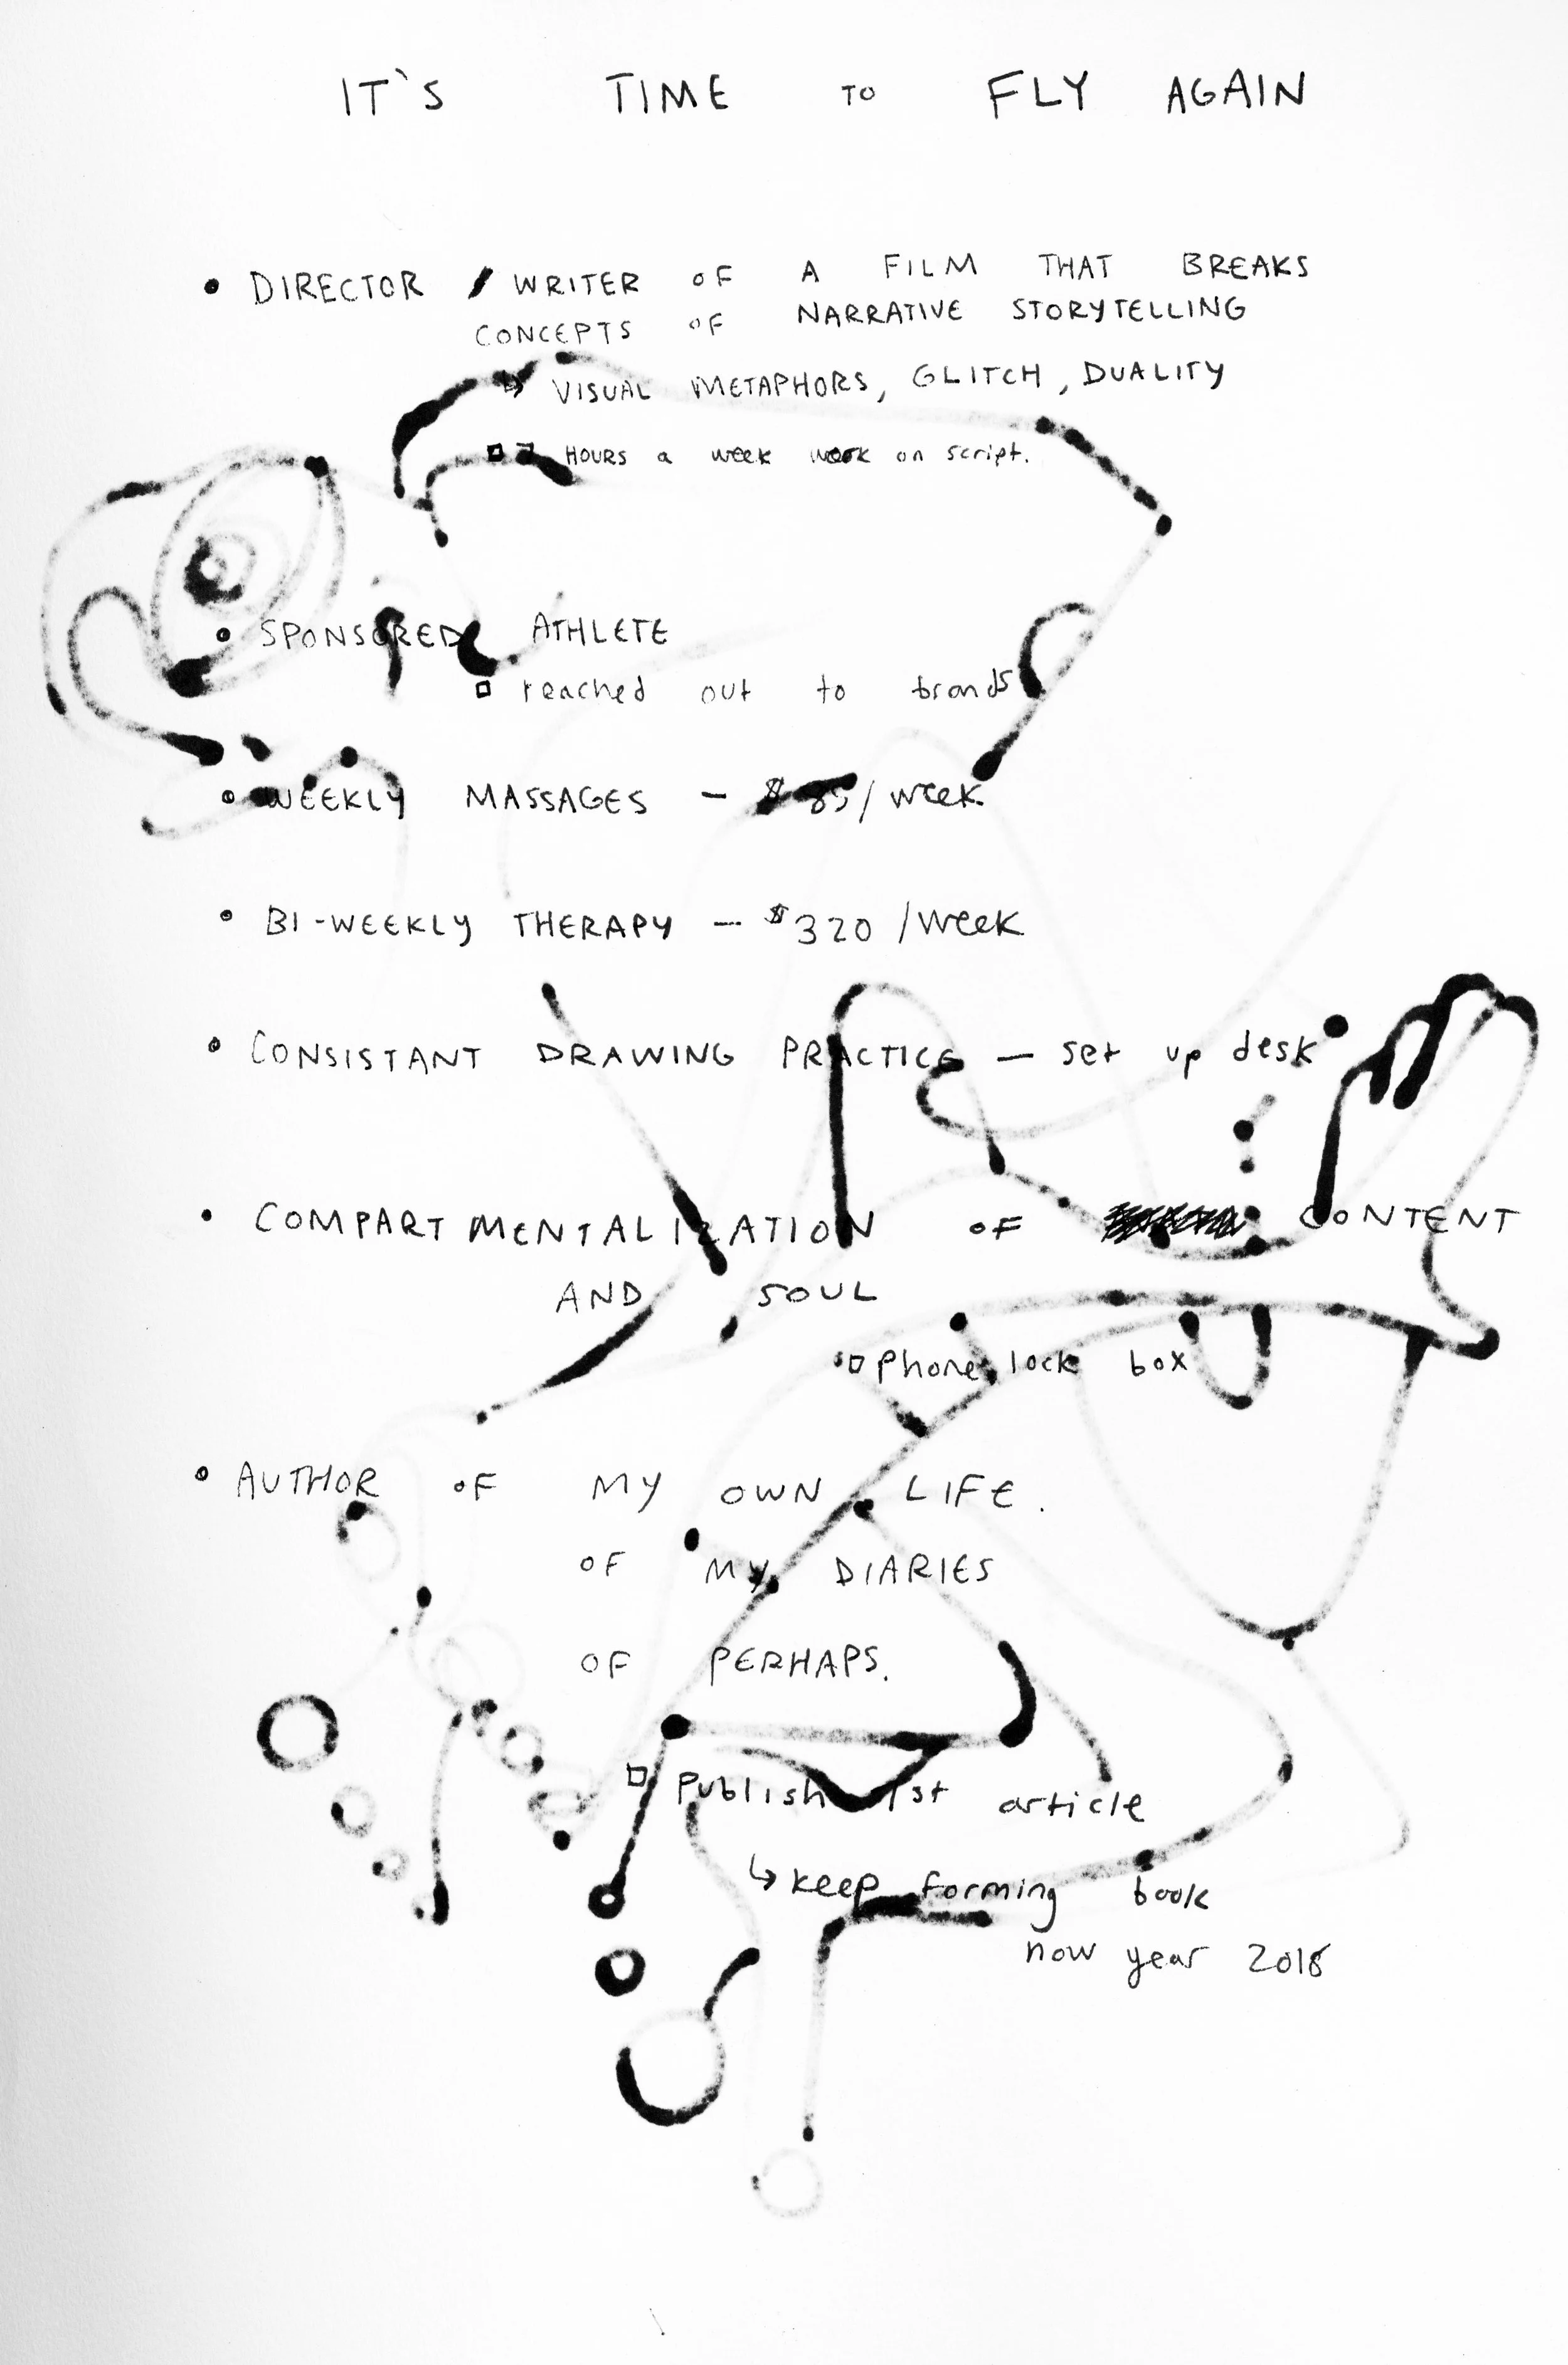 IT'S TIME TO FLY AGAIN
• DIRECTOR / WRITER OF A FILM THAT BREAKS
CONCEPTS OF NARRATIVE STORYTELLING
↳ VISUAL METAPHORS, GLITCH, DUALITY
□ HOURS a week work on script.
• SPONSORED ATHLETE
□ reached out to brands
• WEEKLY MASSAGES — $85/week
• BI-WEEKLY THERAPY — $320/week
• CONSISTANT DRAWING PRACTICE — set up desk
• COMPARTMENTALIZATION OF CONTENT
AND SOUL
□ phone lock box
• AUTHOR OF MY OWN LIFE.
OF MY DIARIES
OF PERHAPS.
□ publish 1st article
↳ keep forming book
now year 2018